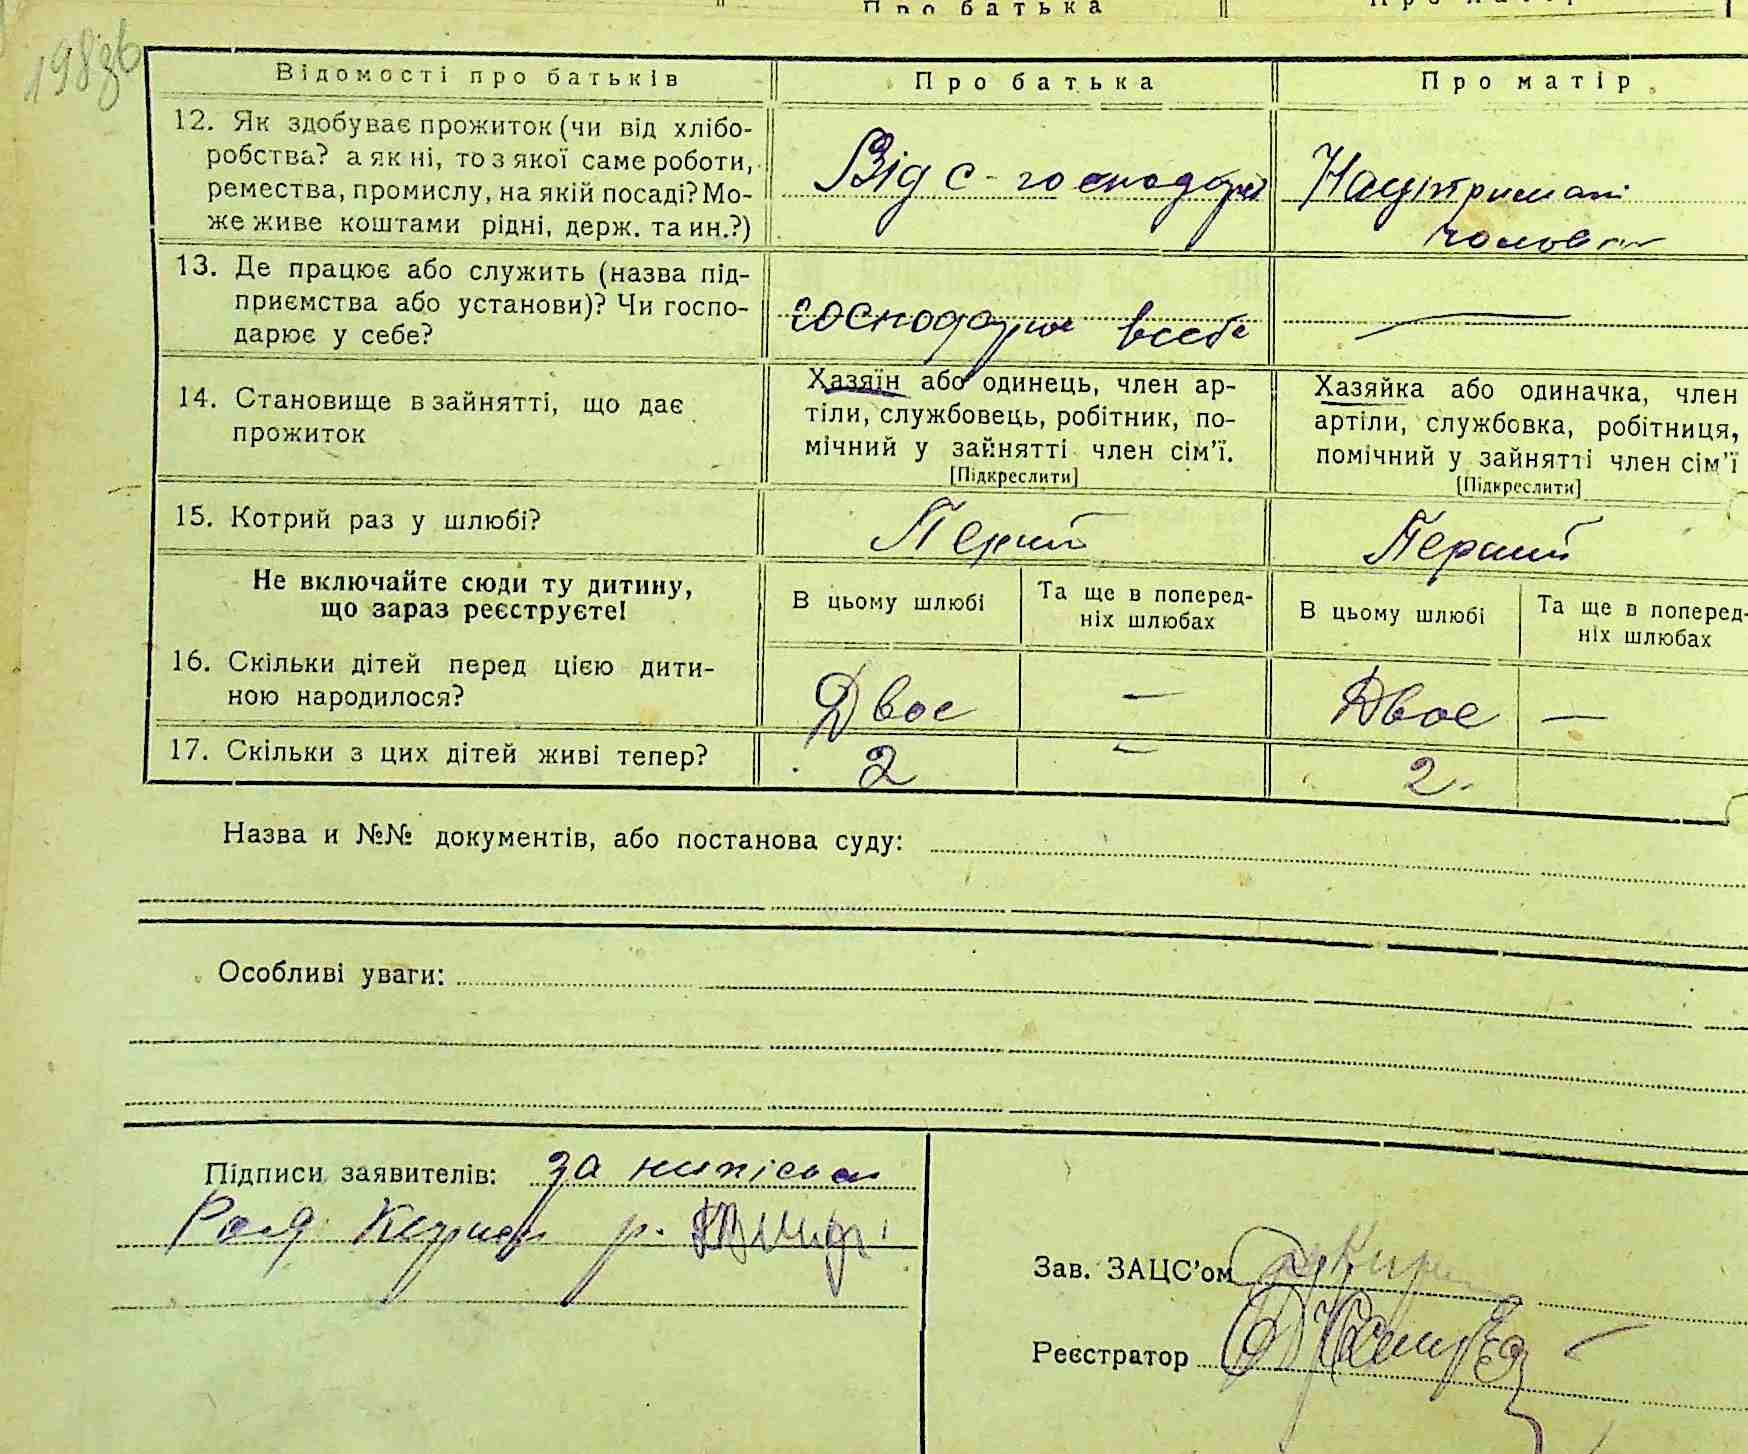 Про батька
198зв
Відомості про батьків
Про батька
Про матір
12. Як здобуває прожиток (чи від хлібо-
робства? а як ні, то з якої саме роботи,
ремества, промислу, на якій посаді? Мо-
же живе коштами рідні, держ. та ин.?)
Від с-господарст
На утриманні
чоловіка
13. Де працює або служить (назва під-
приємства або установи)? Чи госпо-
дарює у себе?
господарює
в себе
14. Становище в зайнятті, що дає
прожиток
Хазяїн або одинець, член ар-
тіли, службовець, робітник, по-
мічний у зайнятті член сім'ї.
[Підкреслити]
Хазяйка або одиначка, член
артіли, службовка, робітниця,
помічний у зайнятті член сім'ї
[Підкреслити]
15. Котрий раз у шлюбі?
Перший
Перший
Не включайте сюди ту дитину,
що зараз реєструєте!
В цьому шлюбі
Та ще в поперед-
ніх шлюбах
В цьому шлюбі
Та ще в поперед-
ніх шлюбах
16. Скільки дітей перед цією дити-
ною народилося?
Двоє
—
Двоє
—
17. Скільки з цих дітей живі тепер?
2
—
2
Назва и №№ документів, або постанова суду:
Особливі уваги:
Підписи заявителів:
за
Зав. ЗАЦС'ом
Реєстратор